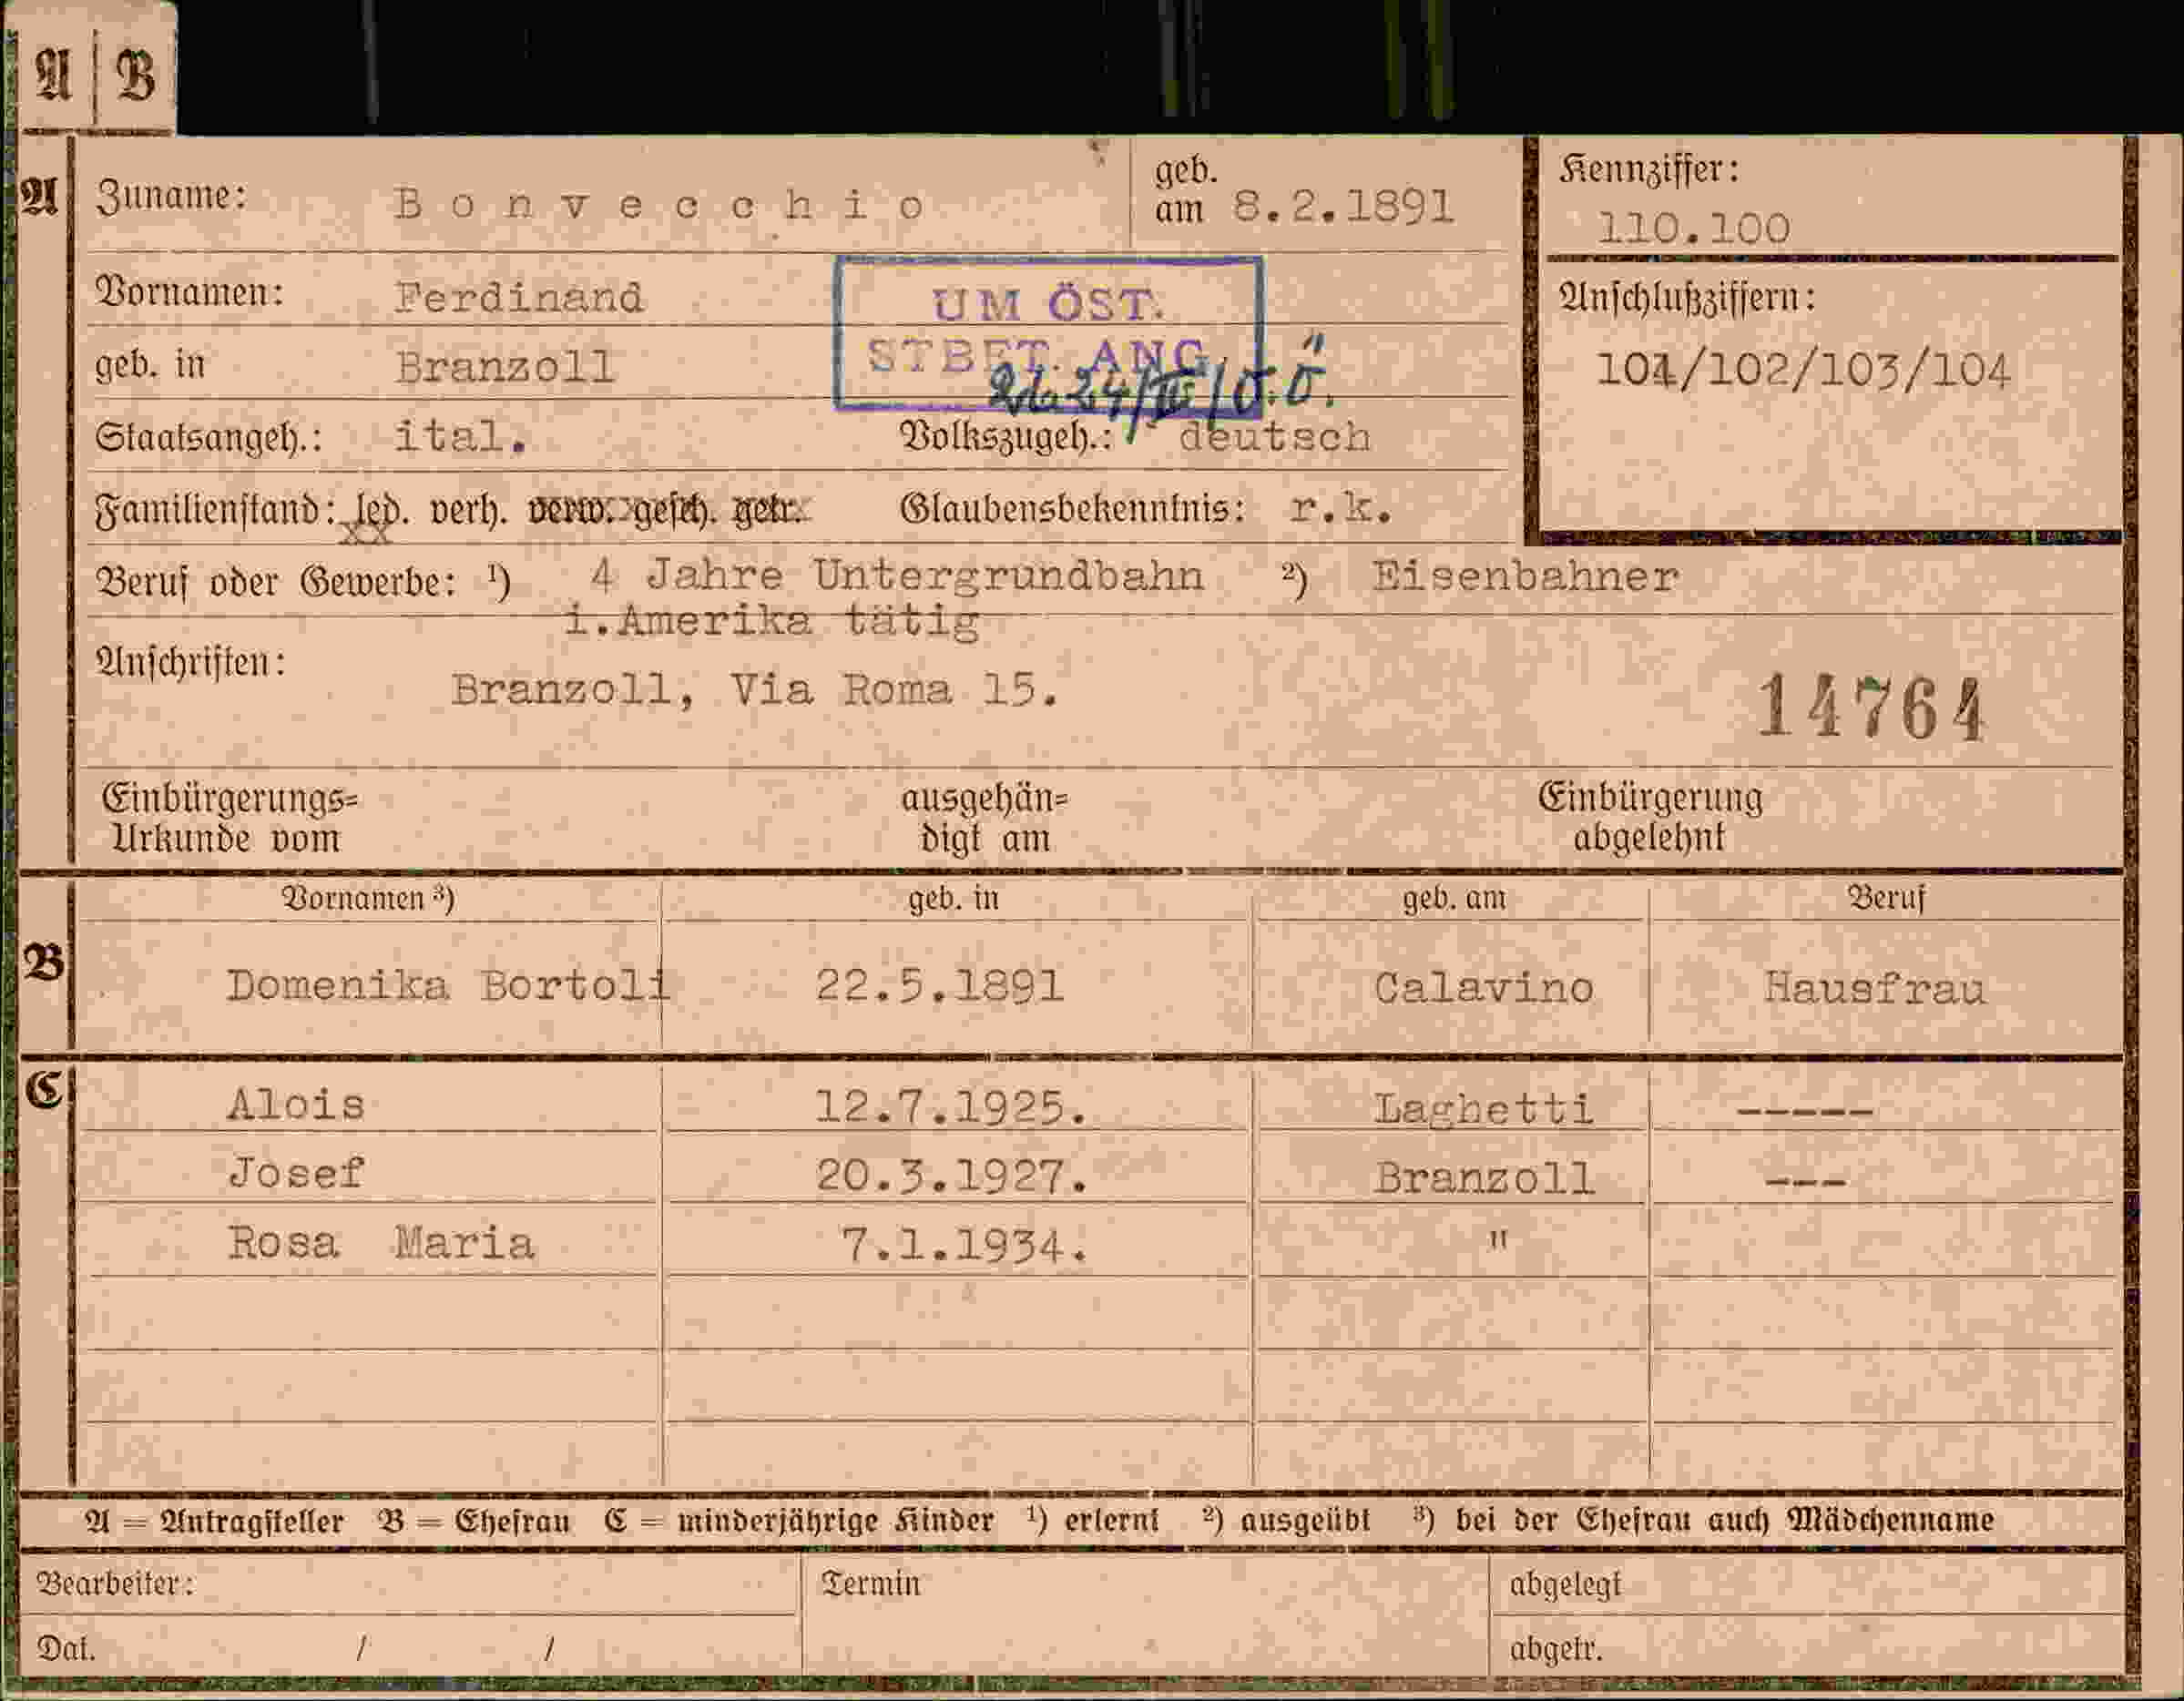 A | B
A Zuname: Bonvecchio geb. am 8.2.1891
Kennziffer:
110.100
Vornamen: Ferdinand
UM ÖST.
STBET. ANG.
Anschlußziffern:
101/102/103/104
geb. in Branzoll
Staatsangeh.: ital. Volkszugeh.: deutsch
Familienstand: led. verh. verw. gesch. getr. Glaubensbekenntnis: r.k.
Beruf oder Gewerbe: ¹) 4 Jahre Untergrundbahn ²) Eisenbahner
i.Amerika tätig
Anschriften:
Branzoll, Via Roma 15.
14764
Einbürgerungs= ausgehän= Einbürgerung
Urkunde vom digt am abgelehnt
Vornamen ³) geb. in geb. am Beruf
B Domenika Bortoli 22.5.1891 Calavino Hausfrau
C Alois 12.7.1925. Laghetti -----
Josef 20.3.1927. Branzoll ---
Rosa Maria 7.1.1934. "
A = Antragsteller B = Ehefrau C = minderjährige Kinder ¹) erlernt ²) ausgeübt ³) bei der Ehefrau auch Mädchenname
Bearbeiter: Termin abgelegt
Dat. / / abgetr.